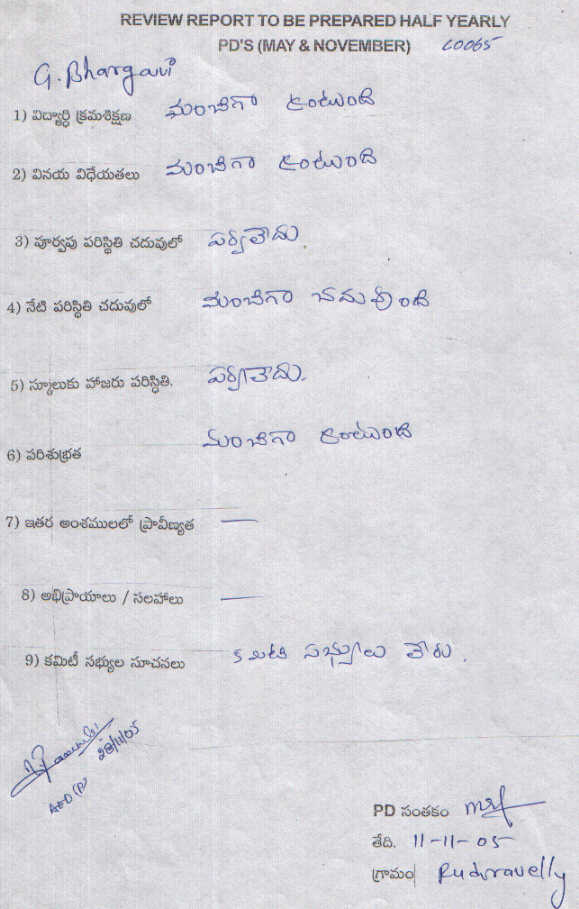 REVIEW REPORT TO BE PREPARED HALF YEARLY
PD'S (MAY & NOVEMBER) 60065
G. Bhargavi
1) విద్యార్థి క్రమశిక్షణ మంచిగా ఉంటుంది
2) వినయ విధేయతలు మంచిగా ఉంటుంది
3) పూర్వపు పరిస్థితి చదువులో పర్వాలేదు.
4) నేటి పరిస్థితి చదువులో మంచిగా చదువుతుంది
5) స్కూలుకు హాజరు పరిస్థితి. పర్వాలేదు.
6) పరిశుభ్రత మంచిగా ఉంటుంది
7) ఇతర అంశములలో ప్రావీణ్యత —
8) అభిప్రాయాలు / సలహాలు —
9) కమిటీ సభ్యుల సూచనలు కమిటి సభ్యులు లేరు.
28/11/05
PD సంతకం
తేది. 11-11-05
గ్రామం Rudravelly